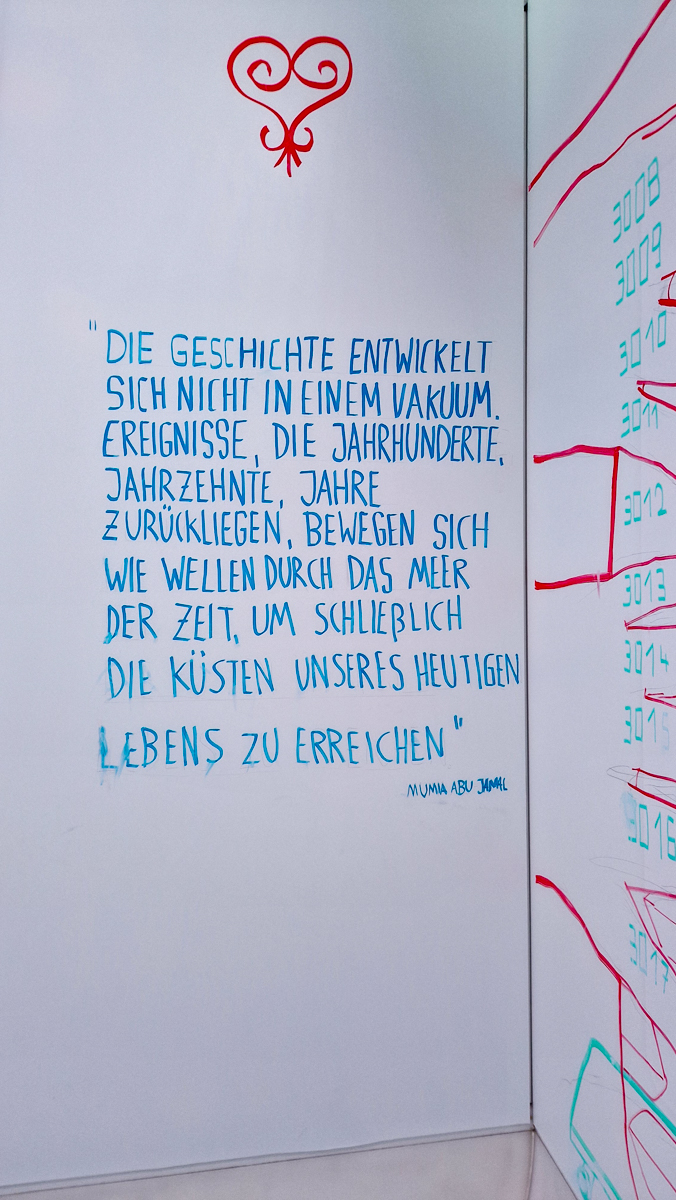 "DIE GESCHICHTE ENTWICKELT
SICH NICHT IN EINEM VAKUUM.
EREIGNISSE, DIE JAHRHUNDERTE,
JAHRZEHNTE, JAHRE
ZURÜCKLIEGEN, BEWEGEN SICH
WIE WELLEN DURCH DAS MEER
DER ZEIT, UM SCHLIEßLICH
DIE KÜSTEN UNSERES HEUTIGEN
LEBENS ZU ERREICHEN"
MUMIA ABU JAMAL
3008
3009
3010
3011
3012
3013
3014
3015
3016
3017